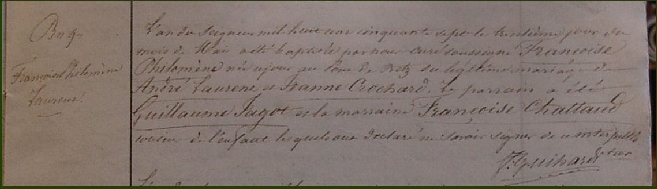 Bap.
Françoise Philomène
Laurent
L'an du Seigneur mil huit cent cinquante sept le trentième jour du
mois de Mai a été baptisée par nous curé soussigné Françoise
Philomène née ce jour au de Retz du légitime mariage de
André Laurent et Jeanne Crochard. Le parrain a été
Guillaume Jagot et la marraine Françoise Chattaud
de l'enfant lesquels ont déclaré ne savoir signer de ce
J. Guihard